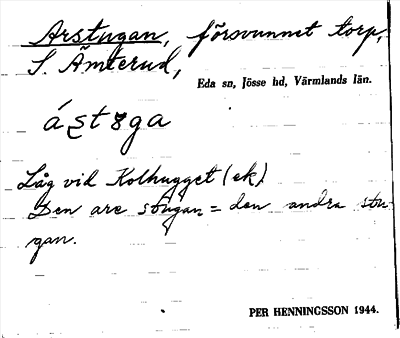 Arstugan, försvunnet torp,
S. Ämterud,
Eda sn, Jösse hd, Värmlands län.
ástɤga
Låg vid Kolhugget (ek).
Den are stugan = den andra stu-
gan.
PER HENNINGSSON 1944.